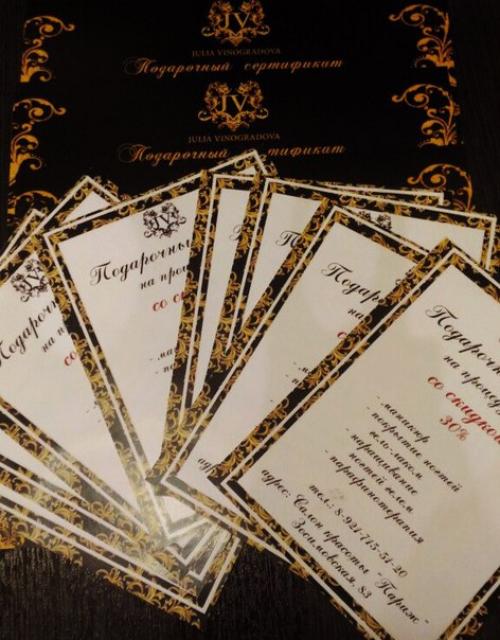 JV
JULIA VINOGRADOVA
Подарочный сертификат
JV
JULIA VINOGRADOVA
Подарочный тификат
Подарочны
на про
со с
Подарочн
на
Подароч
на про
Подарочны
на проце
со скидко
30%
- маникюр
- покрытие ногтей
гель-лаком
- наращивание
ногтей гелем
- парафинотерапия
адрес: Салон красоты "Париж"
Зосимовская, 83